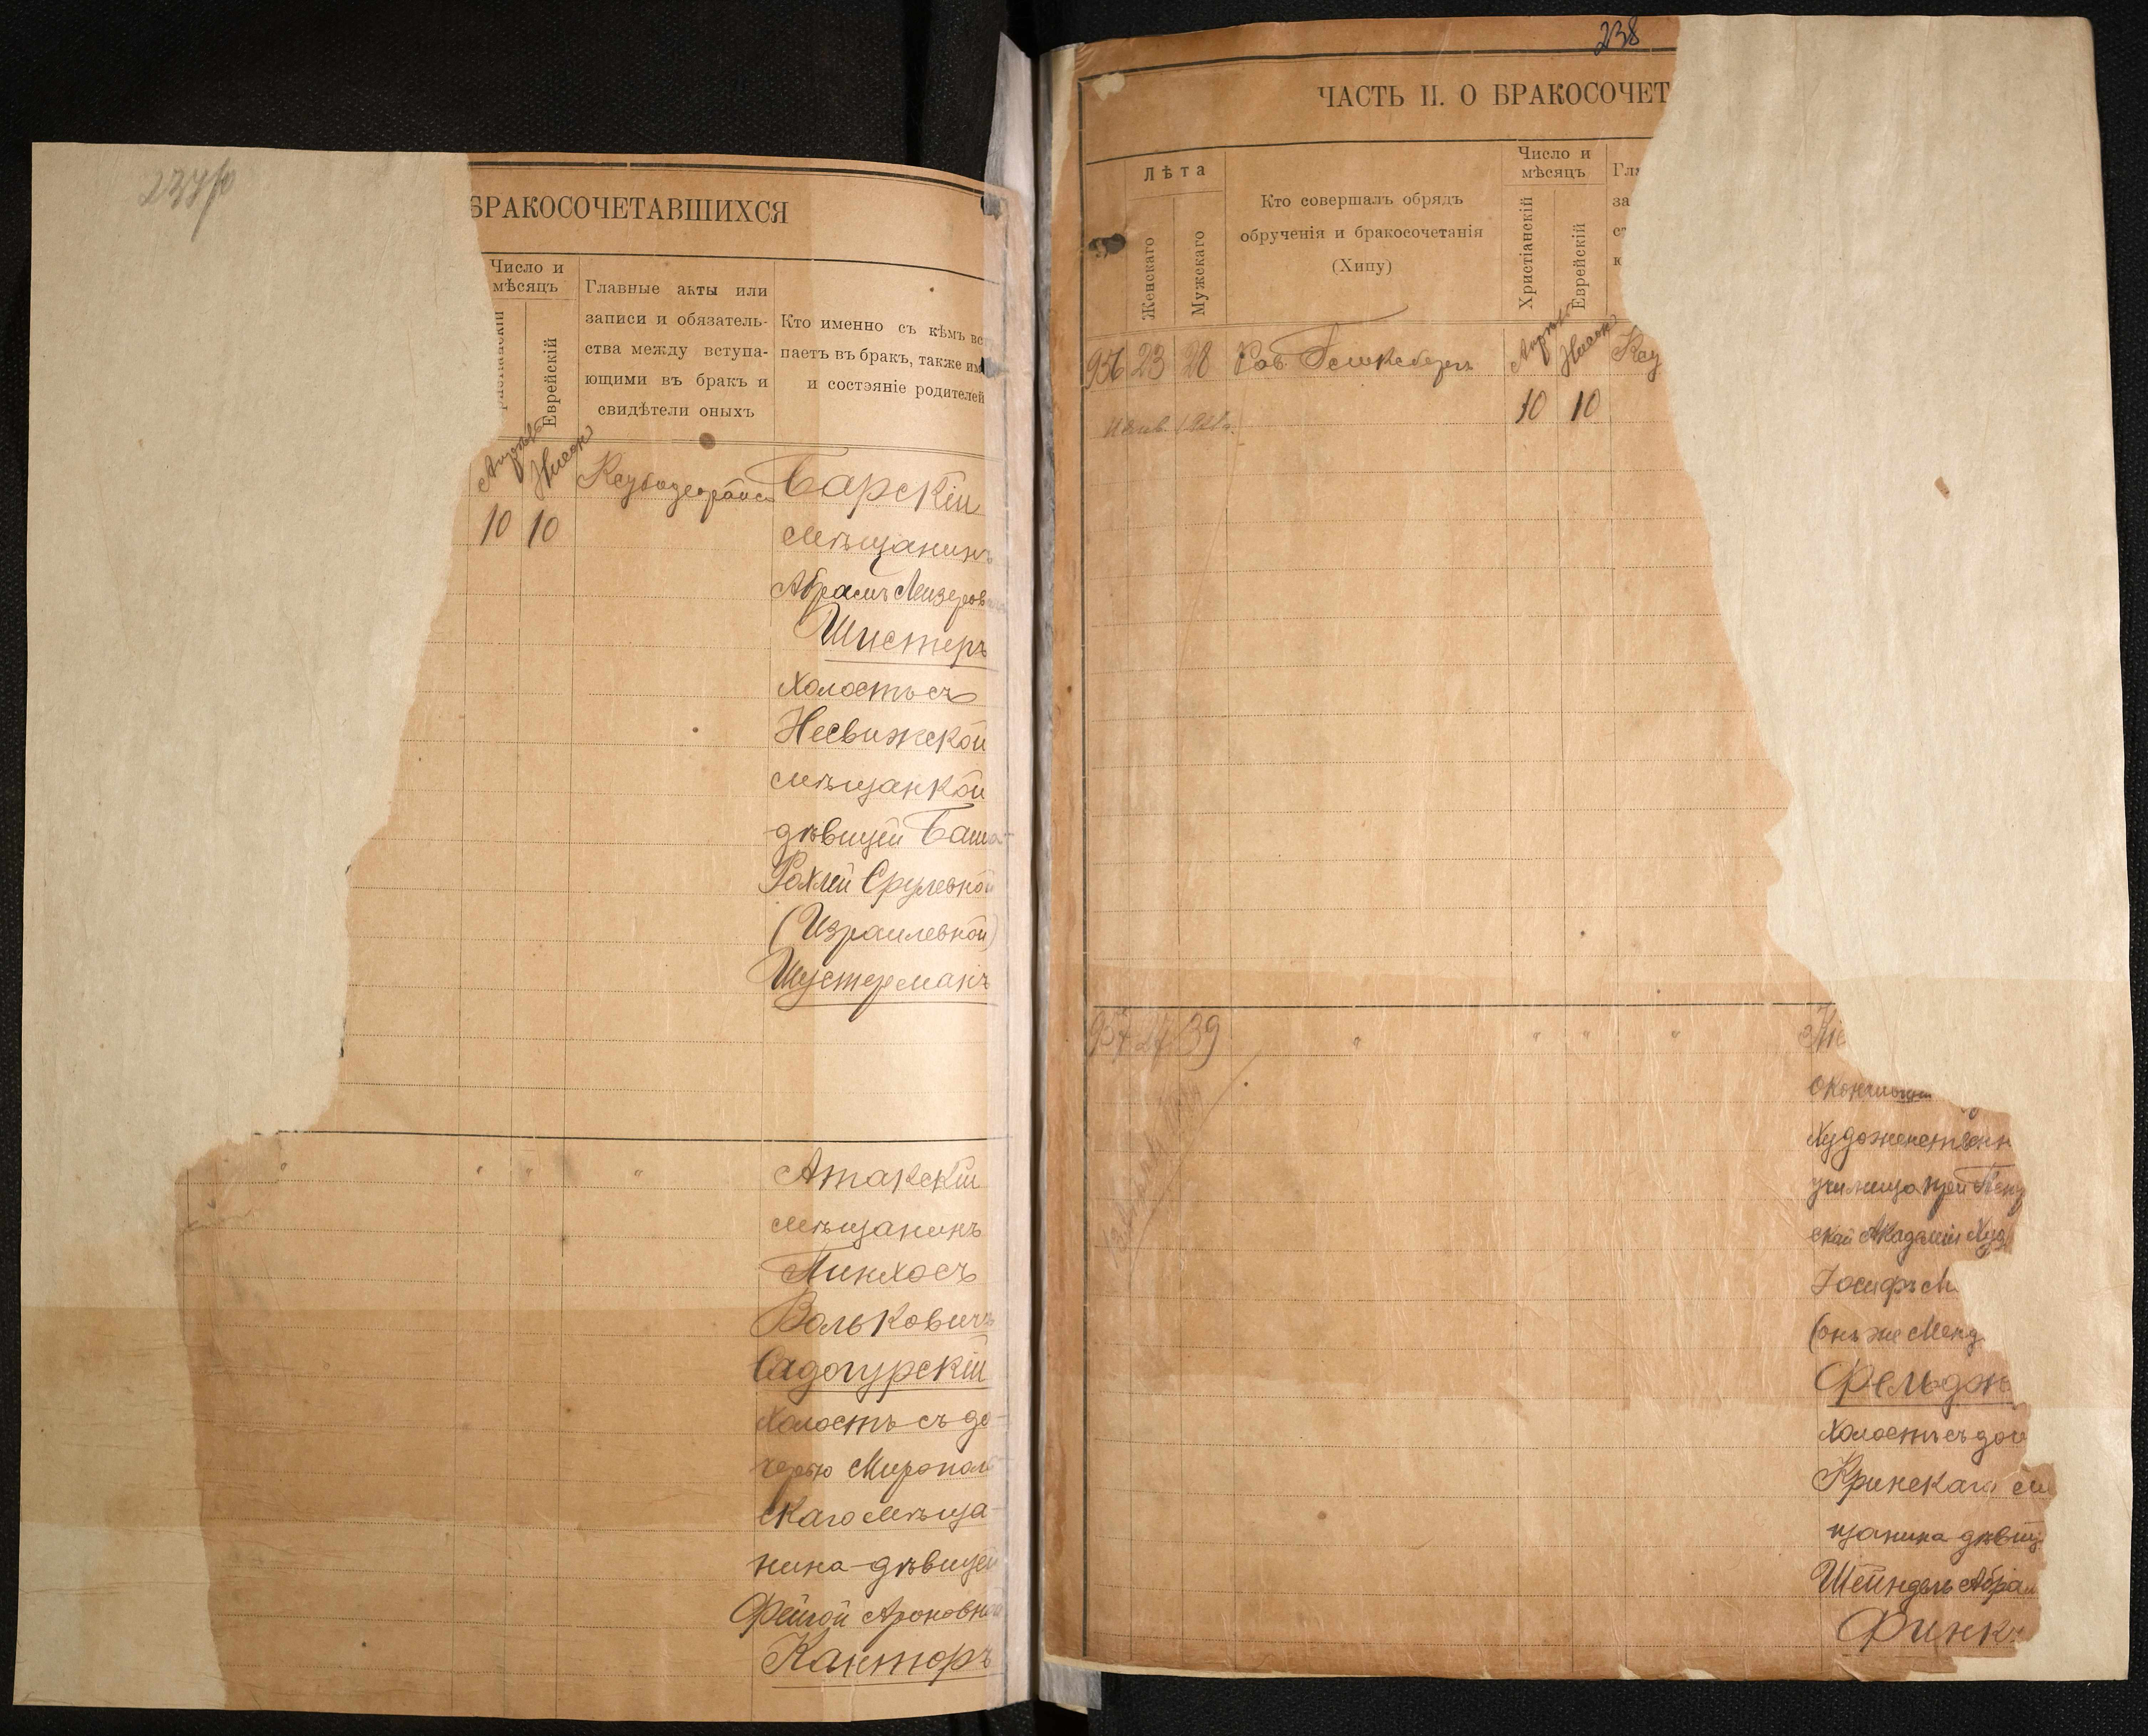 БРАКОСОЧЕТАВШИХСЯ
Число и
мѣсяцъ
Еврейскій
Главные акты или
записи и обязатель-
ства между вступа-
ющими въ бракъ и
свидѣтели оныхъ
Кто именно съ кѣмъ вс
паетъ въ бракъ, также им
и состояніе родителей
Нисон
10 10
Барскій
мѣщанинъ
Абрамъ Лейзеров
Шистеръ
холостъ съ
Несвижской
мѣщанкой
дѣвицей Баша-
Рохлей Срулевной
(Израилевной)
Шустерманъ
" " " "
Атакскій
мѣщанинъ
Пинхосъ
Вольковичъ
Садогурскій
холостъ съ до-
черью Мирополь
скаго мѣща-
нина-дѣвицей
Фейгой Ароновной
Канторъ
238
ЧАСТЬ II. О БРАКОСОЧЕТ
Лѣта
Женскаго
Мужскаго
Кто совершалъ обрядъ
обрученія и бракосочетанія
(Хипу)
Число и
мѣсяцъ
Христіанскій
Еврейскій
Гла
за
ст
ю
956 23 28 Рав. Нисон Ксу
10 10
957 27 39 " " " "
окончивш
Художественн
училища при
ской Академіи Худ
Іосифъ М
(онъ же Менд
Фельдм
холостъ съ доч
Кринскаго м
щанина дѣвиц
Шейндель Абрам
Финк